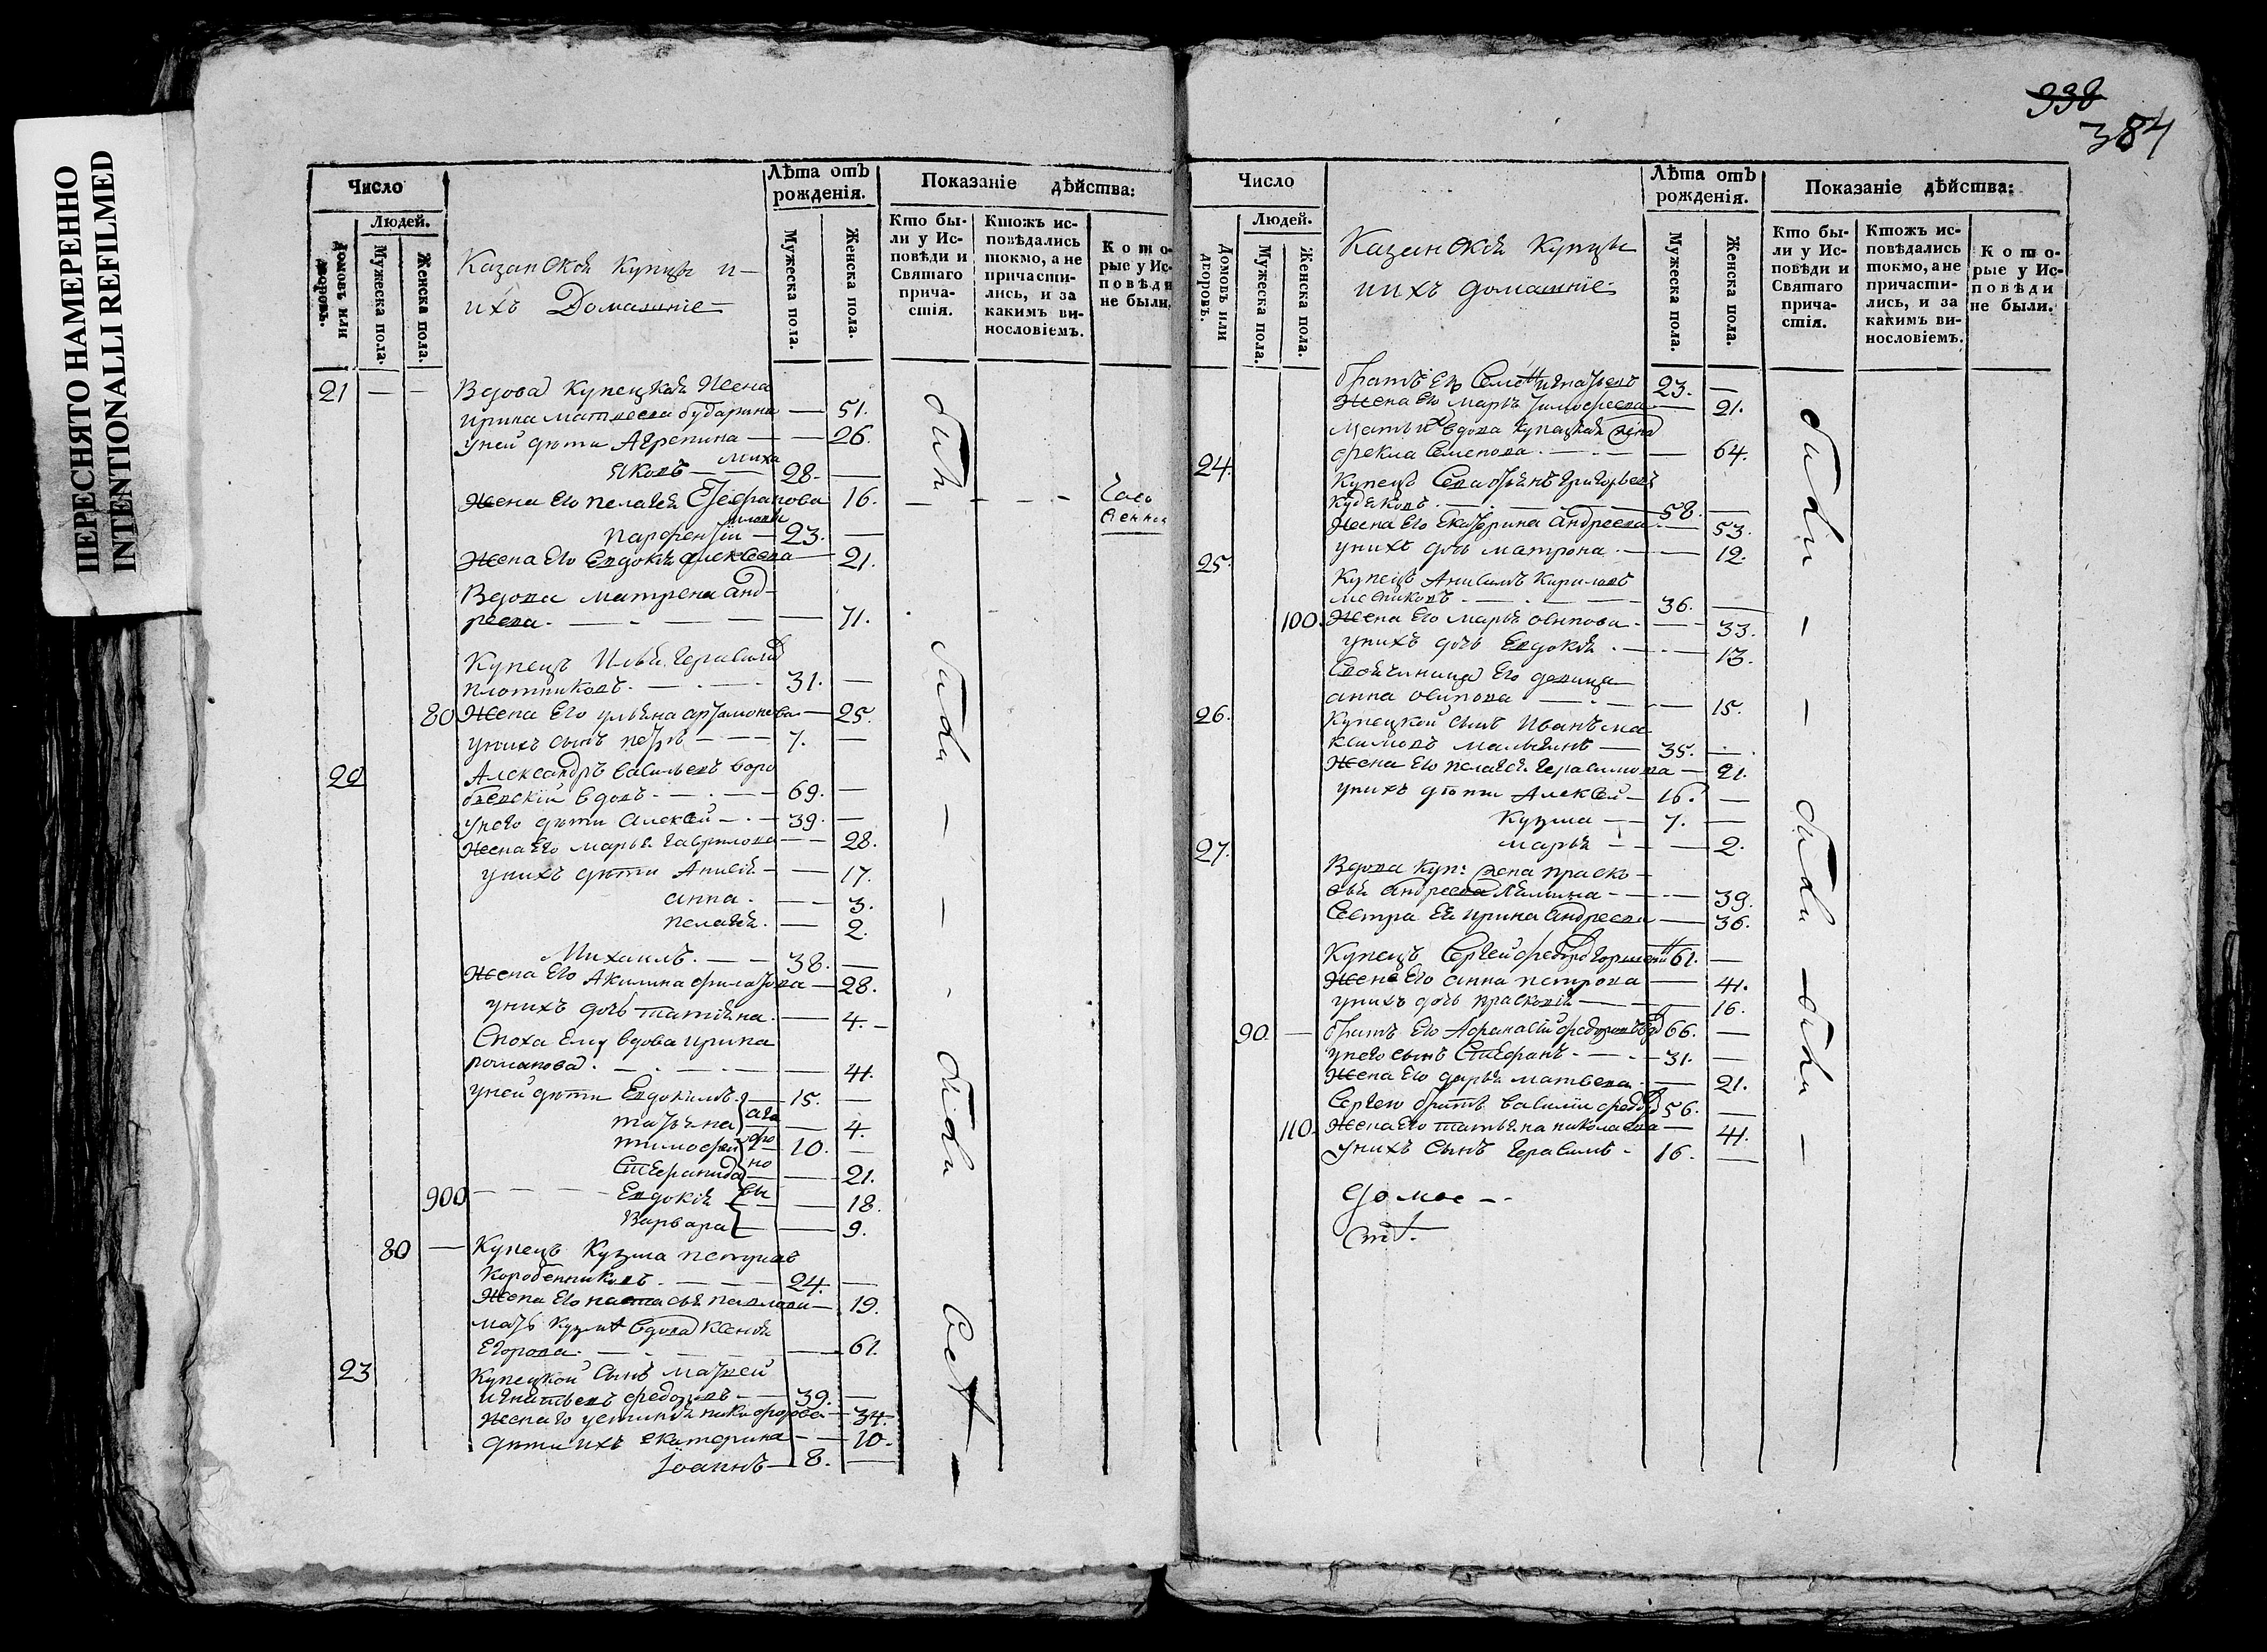 ПЕРЕСНЯТО НАМЕРЕННО
INTENTIONALLI REFILMED
Число
Лѣта отъ рожденія.
Показаніе дѣйства:
Людей.
Домовъ или дворовъ.
Мужеска пола.
Женска пола.
Казанскія Купцы и
ихъ Домашніе
Мужеска пола.
Женска пола.
Кто бы-
ли у Ис-
повѣди и
Святаго
прича-
стія.
Ктожъ ис-
повѣдались
токмо, а не
причасти-
лись, и за
какимъ ви-
нословіемъ.
Кото-
рые у Ис-
повѣди
не были.
21 — — Вдова Купецкая Жена
Ирина матвеева бударина — 51.
уней дѣти Агрепина — — 26.
Яковъ — 28. —
Жена Его пелагея Стефанова 16. —
Парфентій — 23. —
Жена Его Евдокія алексеева — 21.
Вдова матрена анд-
реева. — 71.
Купецъ Илья Герасимо
плотниковъ. — 31. —
80 Жена Его ульяна артамонова — 25.
унихъ сынъ петръ — 7. —
20 Александръ васильевъ воро
бьевскій вдовъ. — 69. —
унего дѣти алексей — 39. —
Жена Его марья гаврилова — 28.
унихъ дѣти Анисія — 17.
анна. — 3.
пелагея. — 2.
Михаилъ. — 38. —
Жена Его Акилина филатова — 28.
унихъ дочь татіяна. — 4. —
Сноха Ему вдова ирина
романова. — 41.
уней дѣти Евдокимъ. — 15. —
татьяна — 4.
тимофей — 10. —
Стефанида — 21.
900 — Евдокія — 18.
Варвара — 9.
80 — Купецъ Кузма петровъ
Коробенниковъ. — 24. —
Жена Его настасья павлова — 19.
мать кузмы вдова Ксенія
Егорова. — 61.
23 Купецкой сынъ матвей
игнатьевъ федоровъ — 39. —
Жена Его устинія никифорова — 34.
дѣти ихъ екатерина — — 10.
Іоаннъ — 8. —
были
были
были
338
384
Число
Лѣта отъ рожденія.
Показаніе дѣйства:
Людей.
Домовъ или дворовъ.
Мужеска пола.
Женска пола.
Казанскія Купцы
иихъ домашніе
Мужеска пола.
Женска пола.
Кто бы-
ли у Ис-
повѣди и
Святаго
прича-
стія.
Ктожъ ис-
повѣдались
токмо, а не
причасти-
лись, и за
какимъ ви-
нословіемъ.
Кото-
рые у Ис-
повѣди
не были.
братъ Его Семенъ игнатьевъ 23. —
Жена Его марья тимофеева — 21.
мать ихъ вдова купецкая жена
фекла Семенова. — 64.
24. Купецъ Севастьянъ григорьевъ
Кудяковъ. — 58. —
Жена Его Екатерина андреева. — 53.
унихъ дочь матрона. — 12.
25. Купецъ Анисимъ Кириловъ
— 36. —
100. Жена Его марья осипова — 33.
унихъ дочь Евдокія. — 13.
Своячиница Его девица
анна осипова — 15.
26. Купецкой сынъ Иванъ ма
ксимовъ — 35.
Жена Его пелагея герасимова — 21.
унихъ дѣти Алексей — 16. —
Кузма — 7. —
марья — 2.
27. Вдова куп: жена праско-
вья андреева — 39.
Сестра Ея ирина андреева — 36.
Купецъ Сергей федоров 61. —
Жена Его анна петрова — 41.
унихъ дочь прасковія — 16.
90. — братъ Его Афанасій федоровъ 66. —
унего сынъ Стефанъ. — 31. —
Жена Его дарья матвеева. — 21.
Сергею братъ василии федоро 56. —
110. Жена Его татьяна николаева — 41.
унихъ Сынъ Герасимъ — 16. —
были
были
были